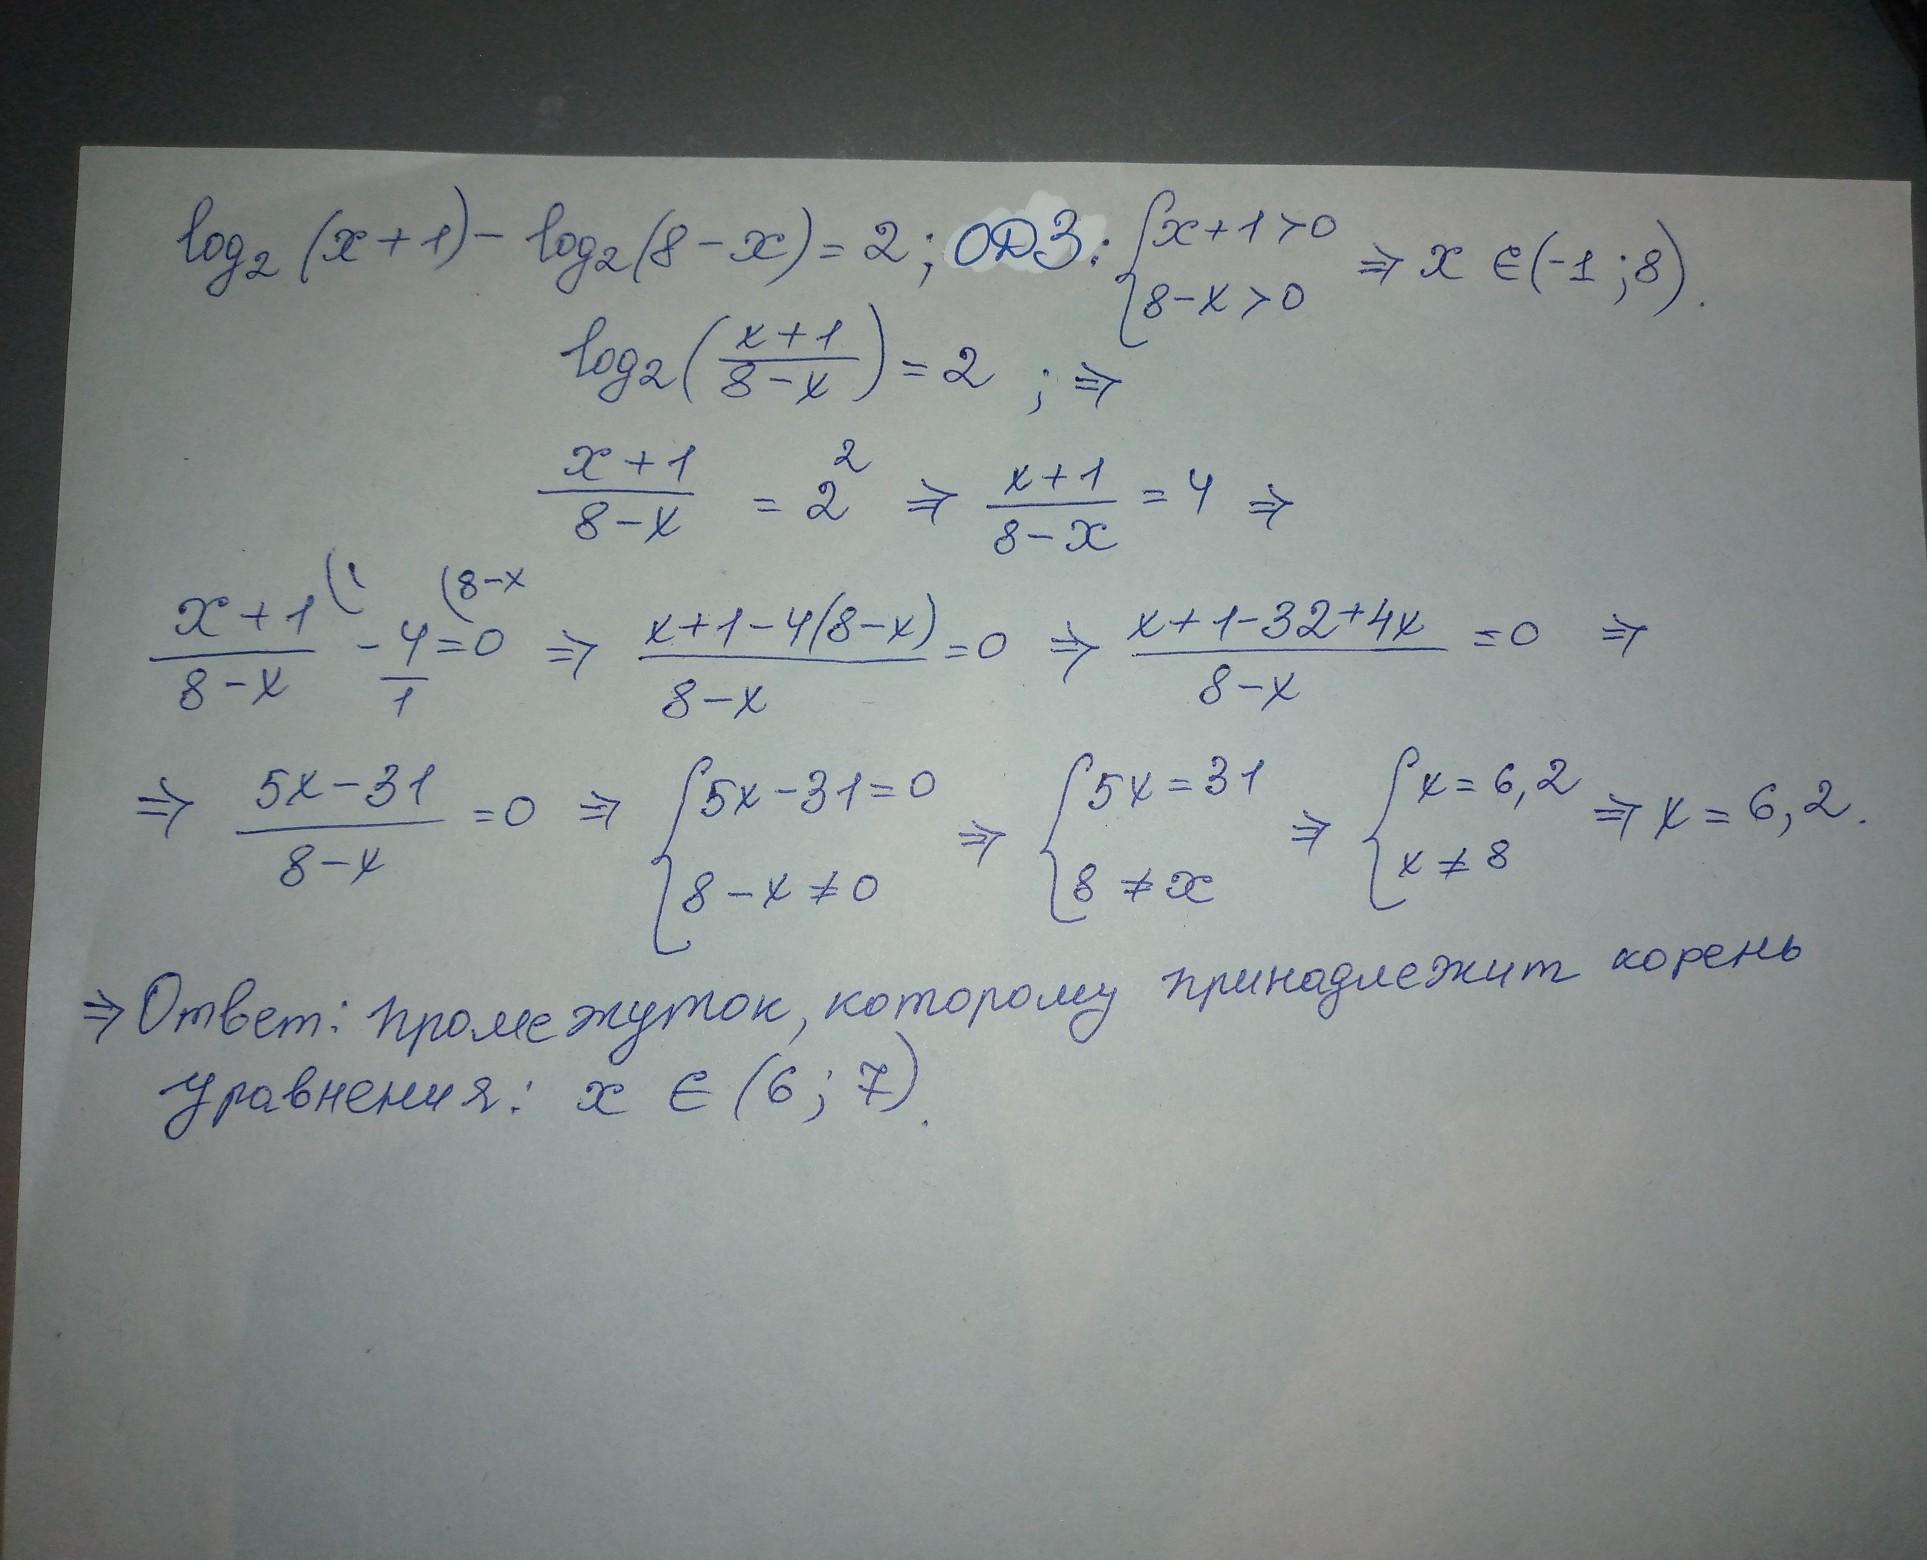 log₂(x+1) - log₂(8-x) = 2; ОДЗ: { x+1>0 ; 8-x>0 ⇒ x ∈ (-1;8).
log₂((x+1)/(8-x)) = 2 ; ⇒
(x+1)/(8-x) = 2² ⇒ (x+1)/(8-x) = 4 ⇒
(x+1)/(8-x) - 4/1 (8-x = 0 ⇒ (x+1-4(8-x))/(8-x) = 0 ⇒ (x+1-32+4x)/(8-x) = 0 ⇒
⇒ (5x-31)/(8-x) = 0 ⇒ { 5x-31=0 ; 8-x≠0 ⇒ { 5x=31 ; 8≠x ⇒ { x=6,2 ; x≠8 ⇒ x = 6,2.
⇒ Ответ: промежуток, которому принадлежит корень
уравнения: x ∈ (6;7).